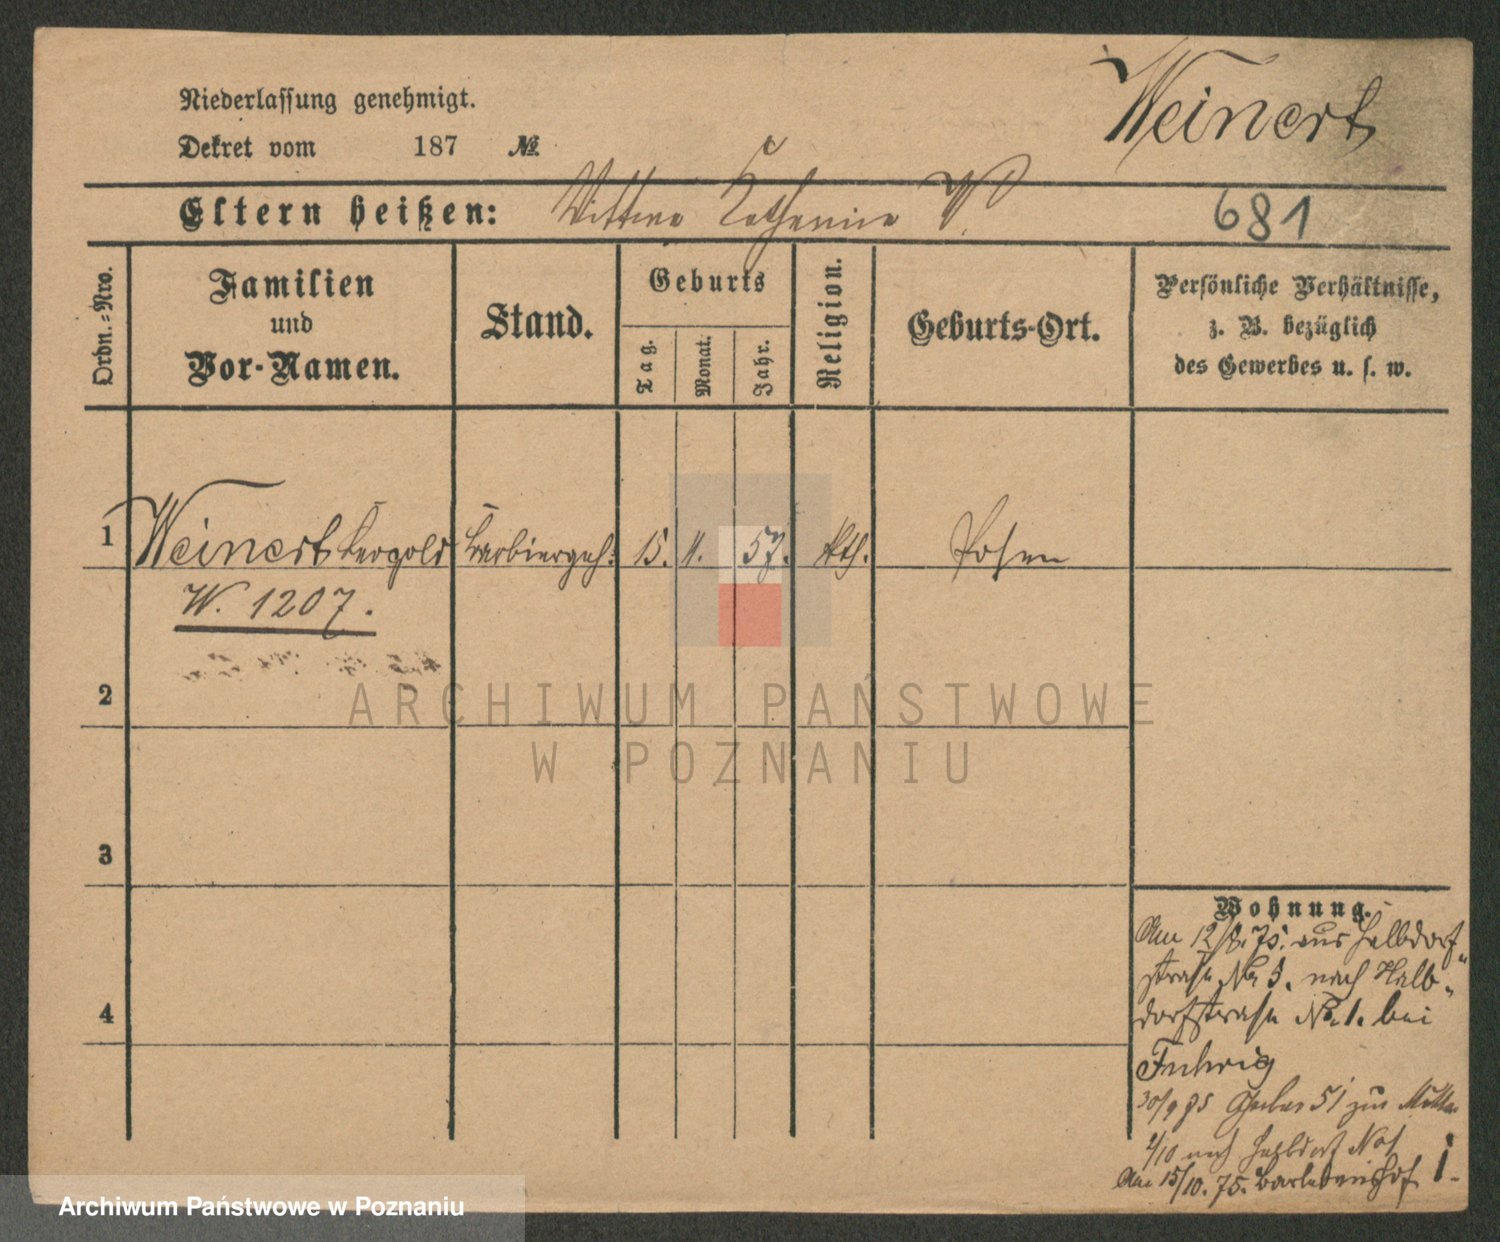 Weinert
Niederlassung genehmigt.
Dekret vom 187 №
Eltern heißen: Wittwe Katharina W.
681
Ordn.-Nro.
Familien
und
Vor-Namen.
Stand.
Geburts
Tag.
Monat.
Jahr.
Religion.
Geburts-Ort.
Persönliche Verhältnisse,
z. B. bezüglich
des Gewerbes u. s. w.
1 Weinert Leopold Barbiergeh: 15. 11. 57. kth. Posen
W. 1207.
2
3
4
Wohnung.
Am 12/8. 75. aus Halbdorf-
straße No 3. nach Halb-
dorfstraße No. 1. bei
30/9 75 51 zur Mutter
2/10 nach Halbdorf No 1
Am 15/10. 75. Bartholdshof 1.
ARCHIWUM PAŃSTWOWE
W POZNANIU
Archiwum Państwowe w Poznaniu